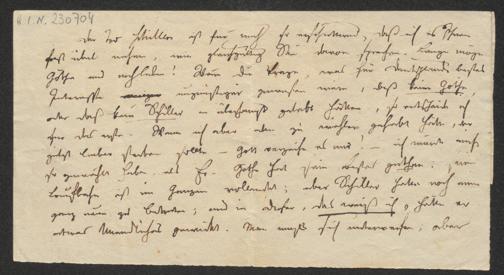 H. I. N. 230704
Der Tod Schillers ist für mich so erschütternd, daß ich es Ihnen
fast übel nehme, wie Sie davon sprechen. Lange möge
Göthe noch leben! Wenn die Frage, was für Deutschlands bestes
Interesse gewesen wäre, daß kein Göthe,
oder daß kein Schiller überhaupt gelebt hätten, so entscheide ich
für das erste. Wenn ich aber zu wählen gehabt hätte, wer
jetzt lieber sterben sollte – Gott verzeihe es mir! – ich würde mich
so gewählt haben, als Er. Göthe hat sein bestes gethan;
Laufbahn ist im Ganzen vollendet; aber Schiller hatte noch eine
ganz neue zu betreten; und in dieser, das weiß ich, hätte er
etwas Unendliches gewirkt. Man muß sich unterwerfen; aber